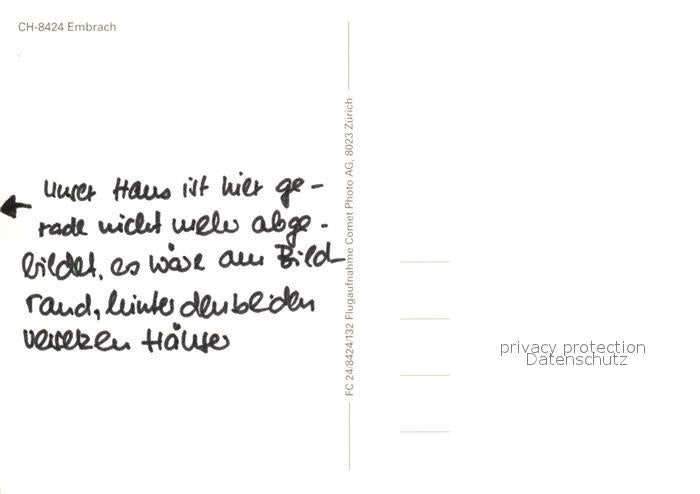 CH-8424 Embrach
unser Haus ist hier ge-
rade nicht mehr abge-
bildet, es wäre am Bild-
rand, hinter den beiden
Häuser
FC 24/8424/132 Flugaufnahme Comet Photo AG, 8023 Zürich
privacy protection
Datenschutz